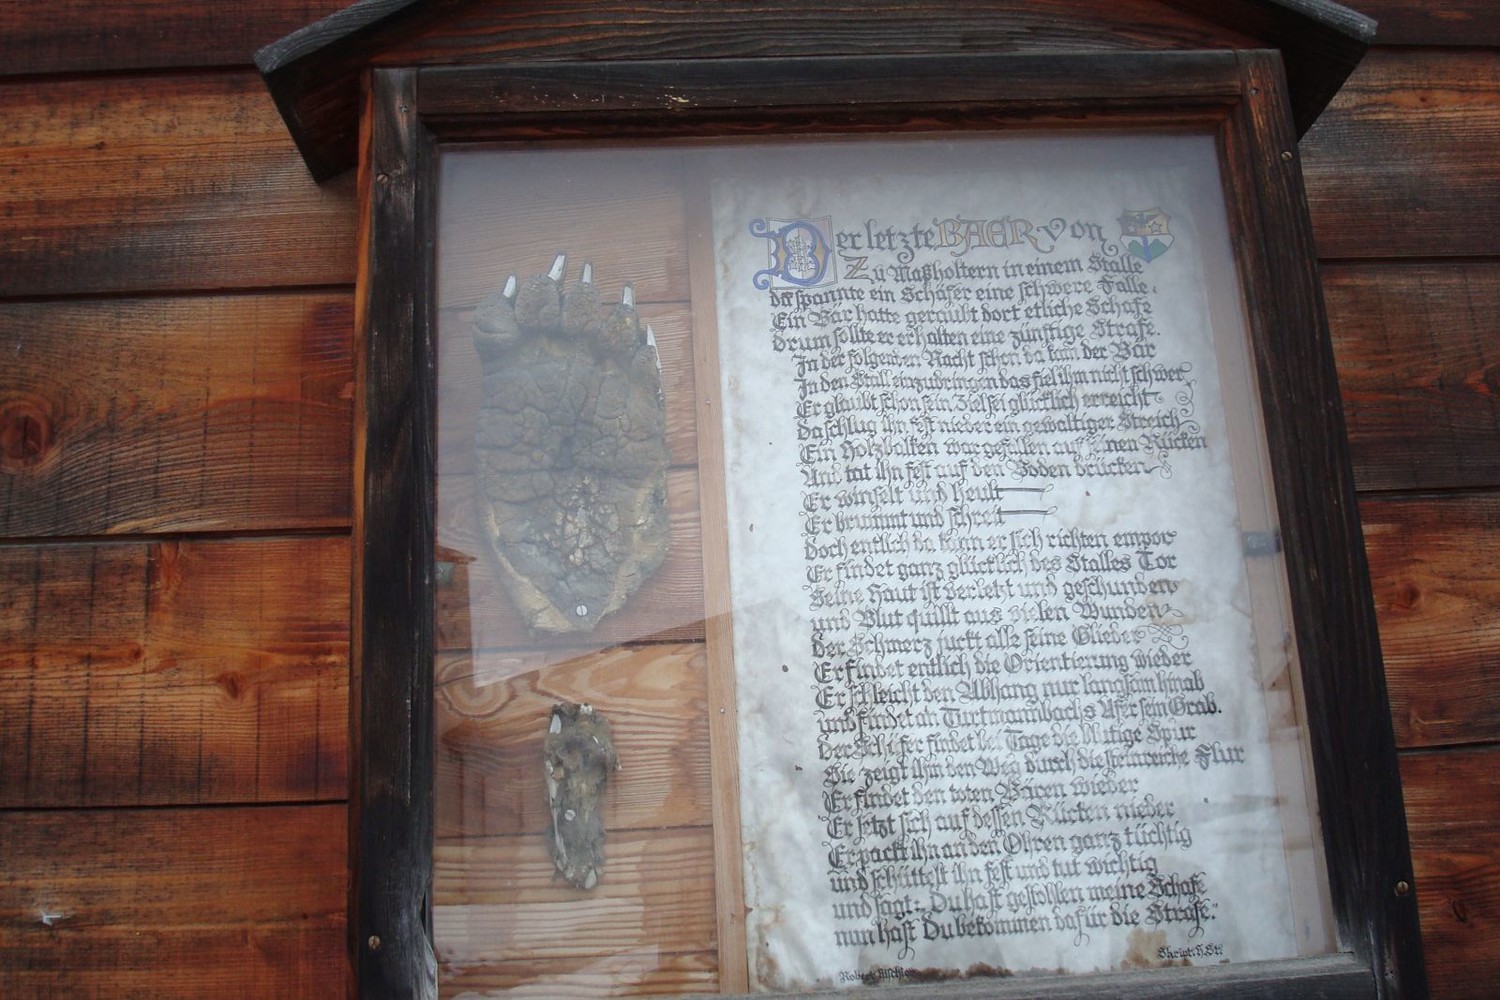 Der letzte BAER von
Zu Maßholtern in einem Stalle
da spannte ein Schäfer eine schwere Falle.
Ein Bär hatte geraubt dort etliche Schafe
drum sollte er erhalten eine zünftige Strafe.
In der folgenden Nacht schon da kam der Bär
In den Stall einzudringen das fiel ihm nicht schwer
Er glaubt schon sein Ziel sei glücklich erreicht
da schlug ihn fest nieder ein gewaltiger Streich
Ein Holzbalken war gefallen auf den Rücken
Und tat ihn fest auf den Boden drücken
Er winselt und heult
Er brummt und schreit
doch entlich da kann er sich richten empor
Er findet ganz glücklich des Stalles Tor
Seine Haut ist verletzt und geschunden
und Blut quillt aus vielen Wunden
der Schmerz juckt alle seine Glieder
Er findet entlich die Orientierung wieder
Er schleicht den Abhang nur langsam hinab
und findet an Turtmannbach's Ufer sein Grab.
Der Schäfer findet bei Tage die blutige Spur
Sie zeigt ihm den Weg durch die steinreiche Flur
Er findet den toten Bären wieder
Er setzt sich auf dessen Rücken nieder
Er packt ihn an den Ohren ganz tüchtig
und schüttelt ihn fest und tut wichtig
und sagt: Du hast gestohlen meine Schafe
nun hast Du bekommen dafür die Strafe."
Skript: H. St.